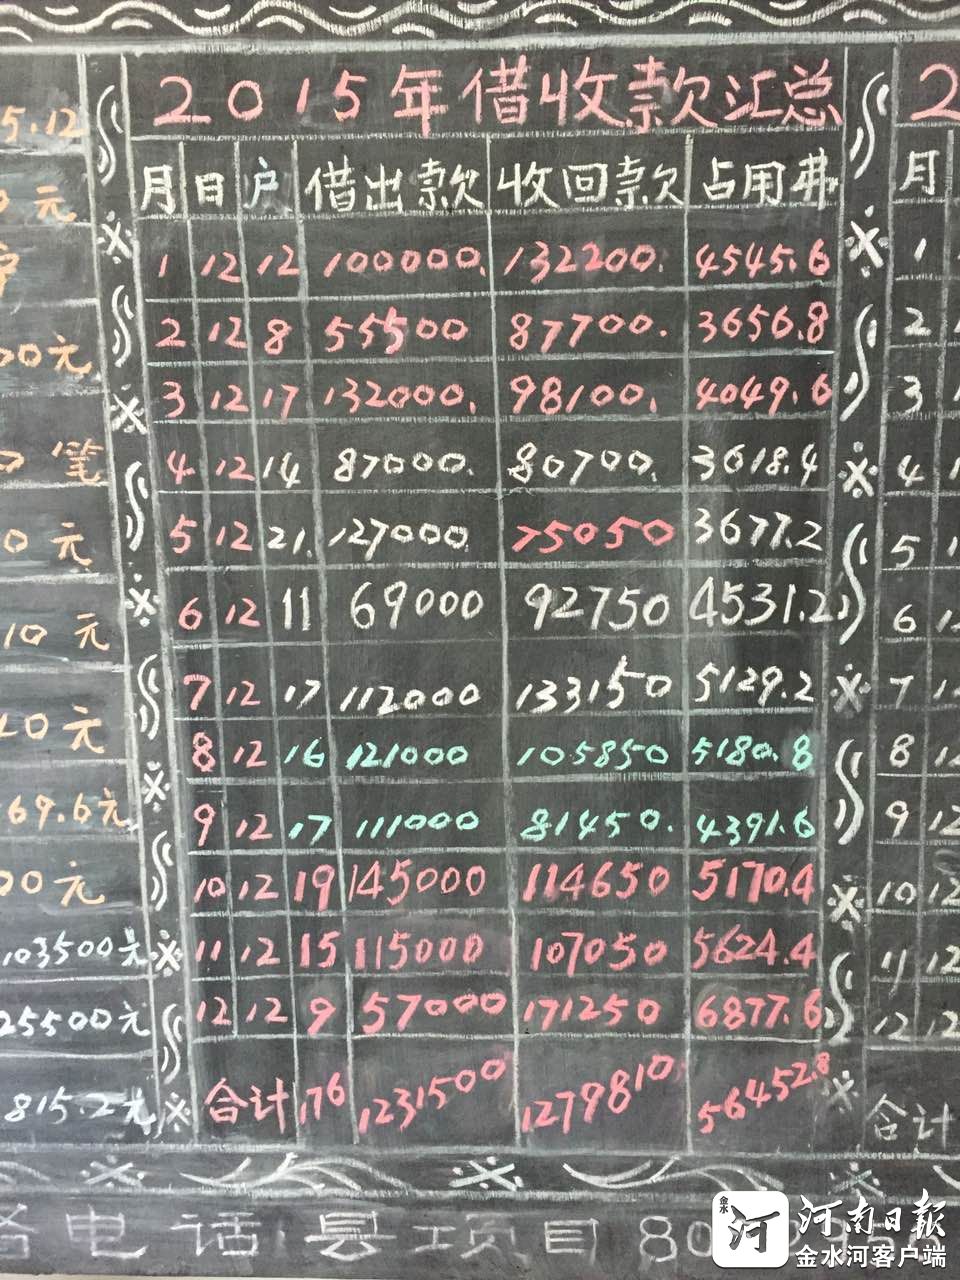 2015年借收款汇总
月 日 户 借出款 收回款 占用费
1 12 12 100000. 132200. 4545.6
2 12 8 55500 87700. 3656.8
3 12 17 132000. 98100. 4049.6
4 12 14 87000. 80700. 3618.4
5 12 21. 127000. 75050 3677.2
6 12 11 69000 92750 4531.2
7 12 17 112000 133150 5129.2
8 12 16 121000 105850 5180.8
9 12 17 111000 81450. 4391.6
10 12 19 145000 114650 5170.4
11 12 15 115000 107050 5624.4
12 12 9 57000 171250 6877.6
合计 176 1231500 1279810 56452.8
5.12
元
00元
笔
0元
10元
40元
69.6元
00元
103500元
25500元
815.2元
2
月
1
2
3
4
5
6
7
8
9
10 12
11 12
12 12
合计
电话县项目80
金水河 河南日报
金水河客户端